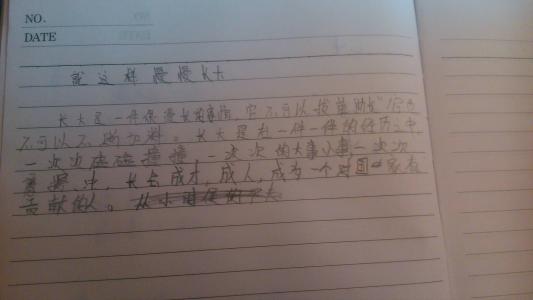 NO.
DATE
就这样慢慢长大
长大是一件很漫长的事情,它不可以拔苗助长,它也
不可以不断加料。长大是在一件一件的经历之中,
一次次磕磕撞撞,一次次的大事小事一次次
中,长大成才,成人,成为一个对国家有
贡献的人。